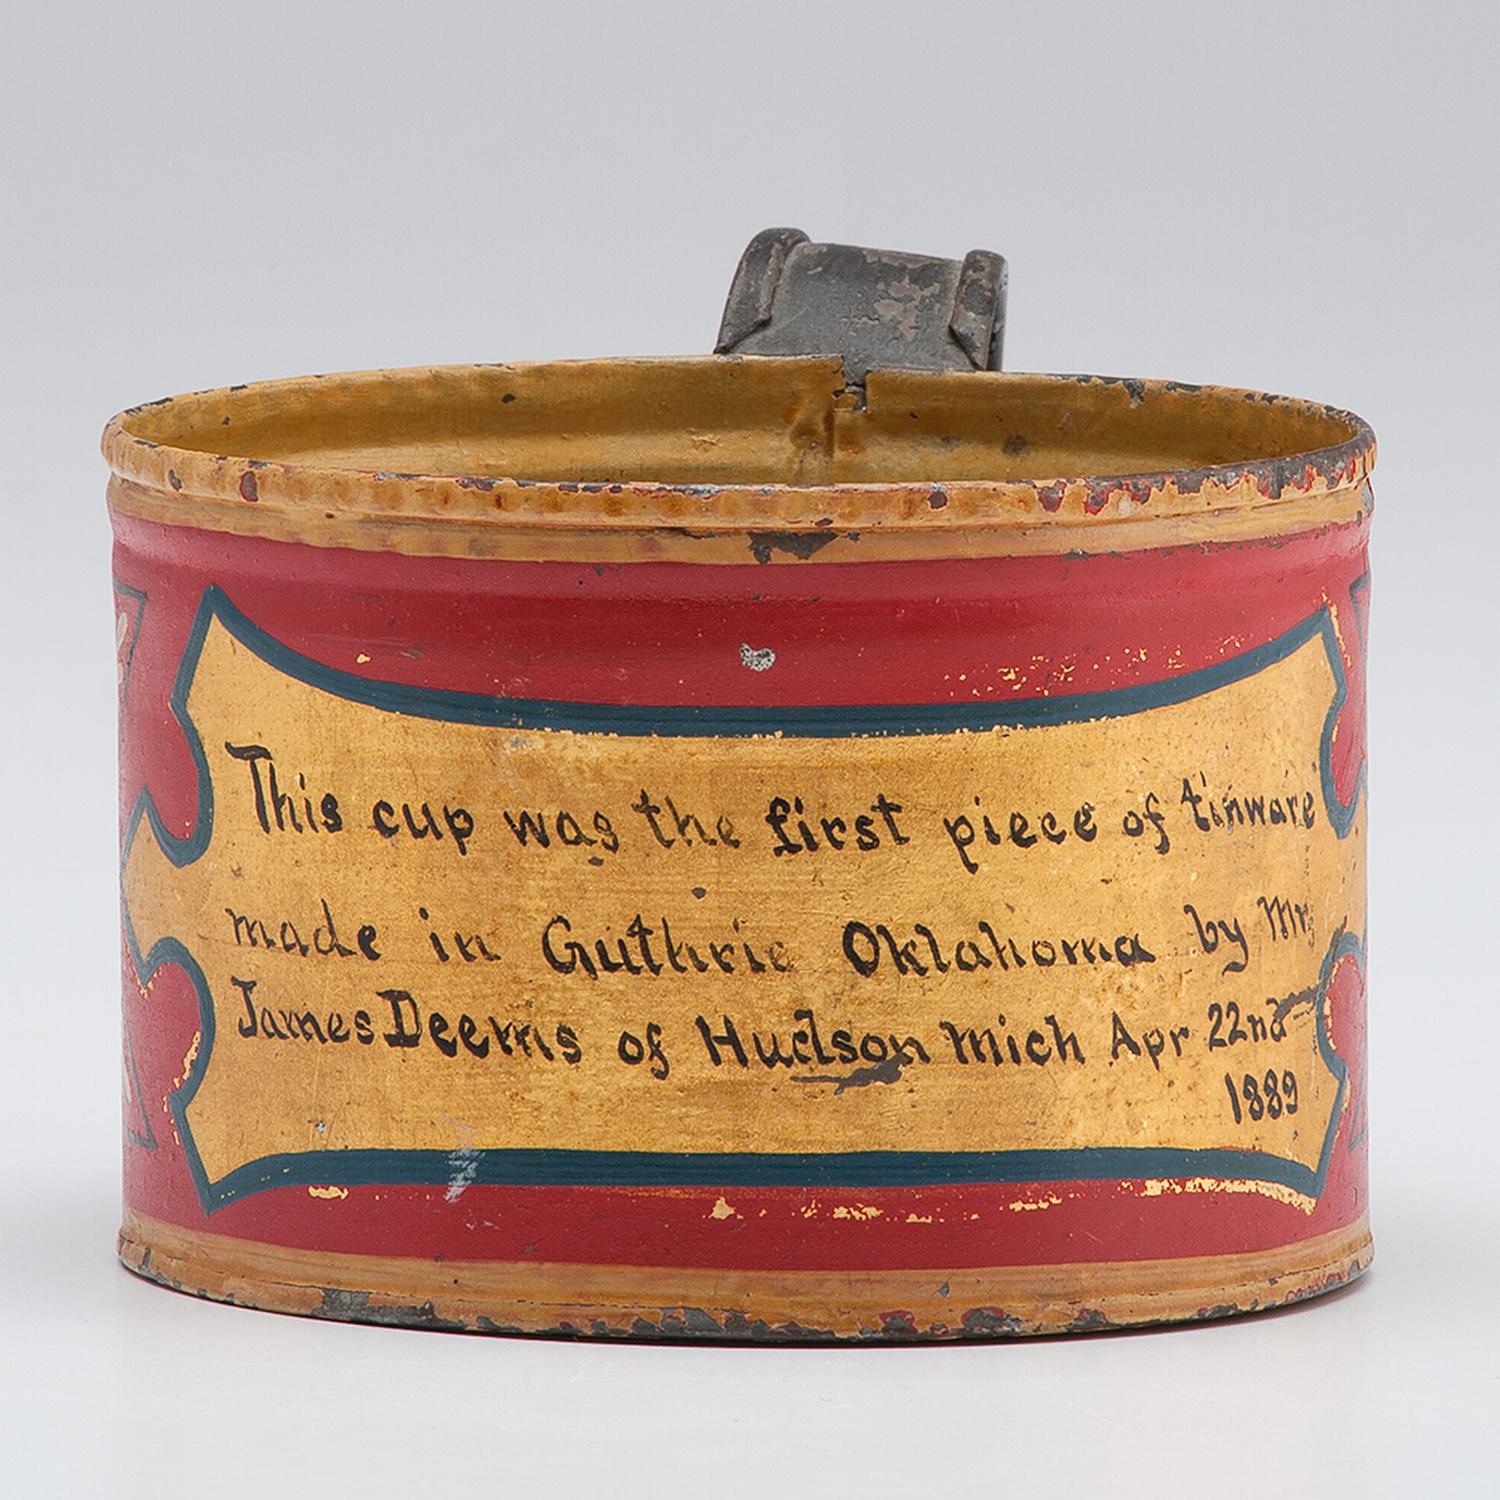 This cup was the first piece of tinware
made in Guthrie Oklahoma by Mr
James Deems of Hudson Mich Apr 22nd
1889